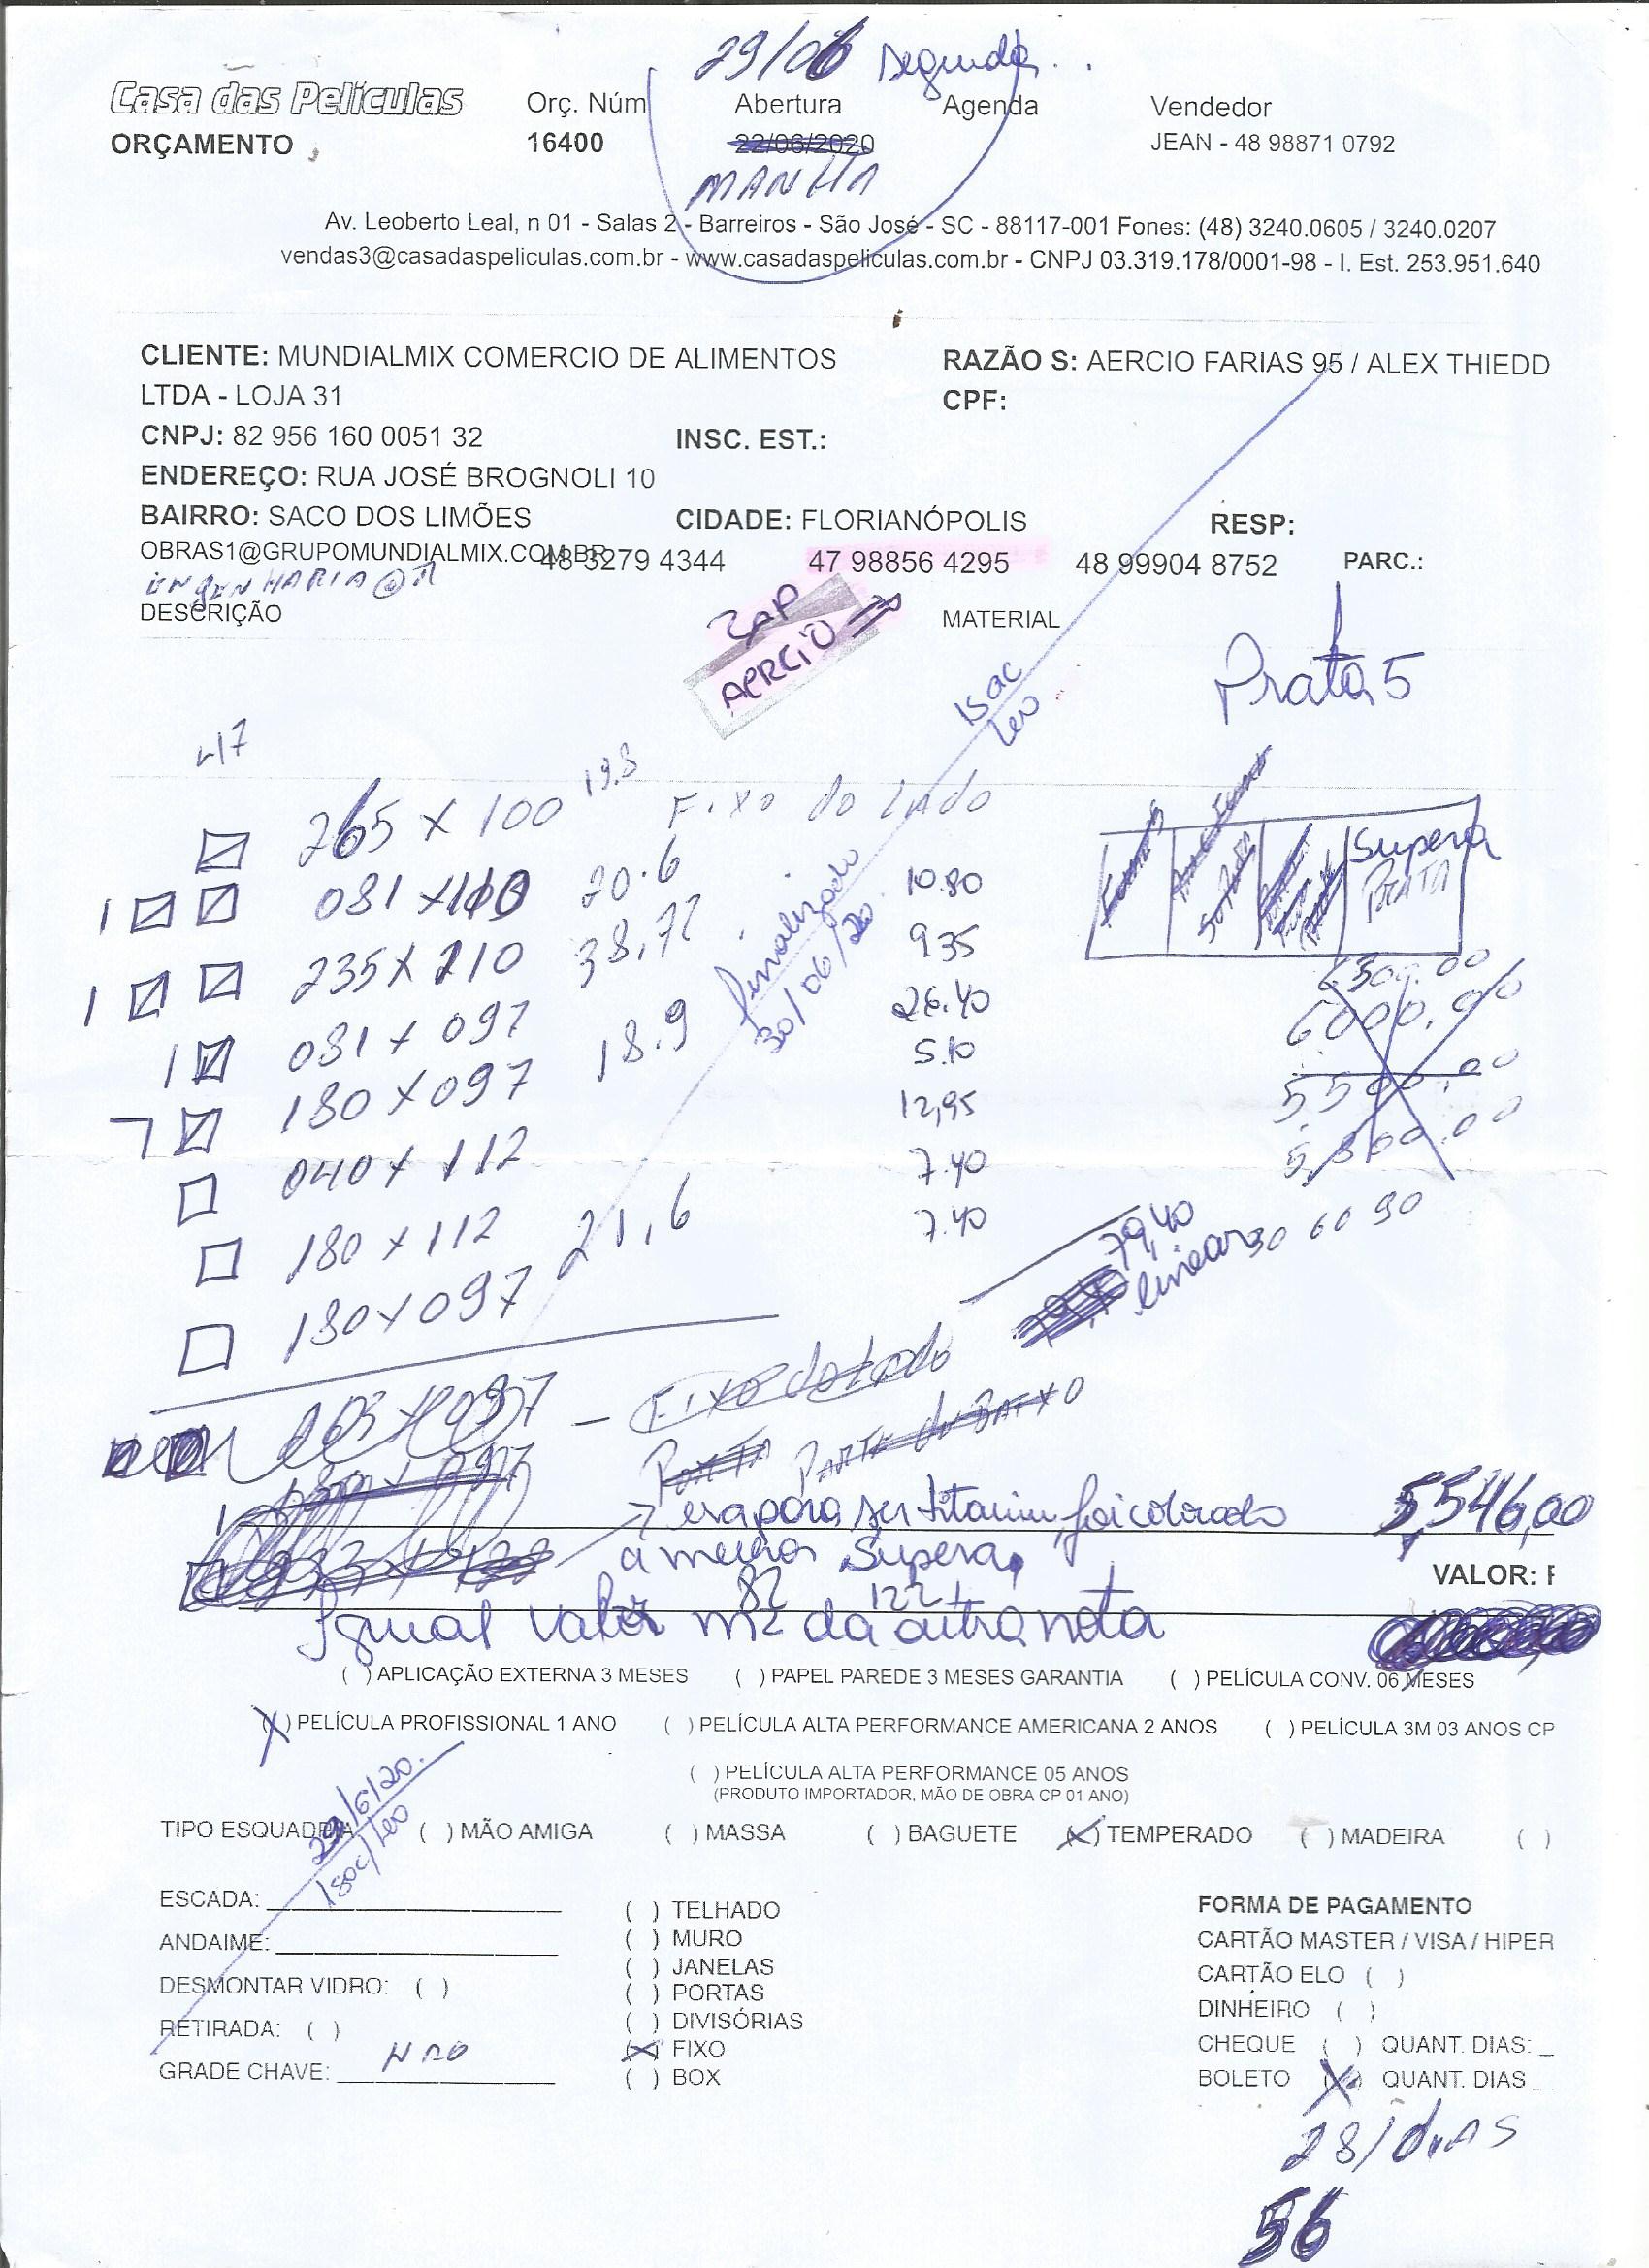 29/06 segunda..
Casa das Películas Orç. Núm Abertura Agenda Vendedor
ORÇAMENTO 16400 22/06/2020 JEAN - 48 98871 0792
MANHÃ
Av. Leoberto Leal, n 01 - Salas 2 - Barreiros - São José - SC - 88117-001 Fones: (48) 3240.0605 / 3240.0207
vendas3@casadaspeliculas.com.br - www.casadaspeliculas.com.br - CNPJ 03.319.178/0001-98 - I. Est. 253.951.640
CLIENTE: MUNDIALMIX COMERCIO DE ALIMENTOS RAZÃO S: AERCIO FARIAS 95 / ALEX THIEDD
LTDA - LOJA 31 CPF:
CNPJ: 82 956 160 0051 32 INSC. EST.:
ENDEREÇO: RUA JOSÉ BROGNOLI 10
BAIRRO: SACO DOS LIMÕES CIDADE: FLORIANÓPOLIS RESP:
OBRAS1@GRUPOMUNDIALMIX.COM.BR 48 3279 4344 47 98856 4295 48 99904 8752 PARC.:
ENGENHARIA@
DESCRIÇÃO ZAP MATERIAL
AERCIO
Prata 5
Isac
Leo
265 x 100 19.8 Fixo do lado
Supera
PRATA
081 x 20.6 10.80
1 235 x 210 38,72 935
finalizado
30/06/20
1 081 x 097 26.40 6300.00
180 x 097 18.9 5.10 6000,00
7 12,95 5500,00
040 x 112 7.40 5,800.00
180 x 112 21,6 7.40
180 x 097 79,40
linear 30 60 90
103 x 097 - Fixo do lado
PORTA PARTE de BAIXO
era para ser titanium, foi colocado 5,546,00
a melhor Supera, VALOR: F
82 122
Igual valor m2 da outra nota
( ) APLICAÇÃO EXTERNA 3 MESES ( ) PAPEL PAREDE 3 MESES GARANTIA ( ) PELÍCULA CONV. 06 MESES
(X) PELÍCULA PROFISSIONAL 1 ANO ( ) PELÍCULA ALTA PERFORMANCE AMERICANA 2 ANOS ( ) PELÍCULA 3M 03 ANOS CP
( ) PELÍCULA ALTA PERFORMANCE 05 ANOS
(PRODUTO IMPORTADOR, MÃO DE OBRA CP 01 ANO)
29/6/20.
Isac/Leo
TIPO ESQUADRIA ( ) MÃO AMIGA ( ) MASSA ( ) BAGUETE (X) TEMPERADO ( ) MADEIRA ( )
ESCADA:
ANDAIME:
DESMONTAR VIDRO: ( )
RETIRADA: ( )
GRADE CHAVE: NÃO
( ) TELHADO
( ) MURO
( ) JANELAS
( ) PORTAS
( ) DIVISÓRIAS
(X) FIXO
( ) BOX
FORMA DE PAGAMENTO
CARTÃO MASTER / VISA / HIPER
CARTÃO ELO ( )
DINHEIRO ( )
CHEQUE ( ) QUANT. DIAS: _
BOLETO (X) QUANT. DIAS __
28/dias
56